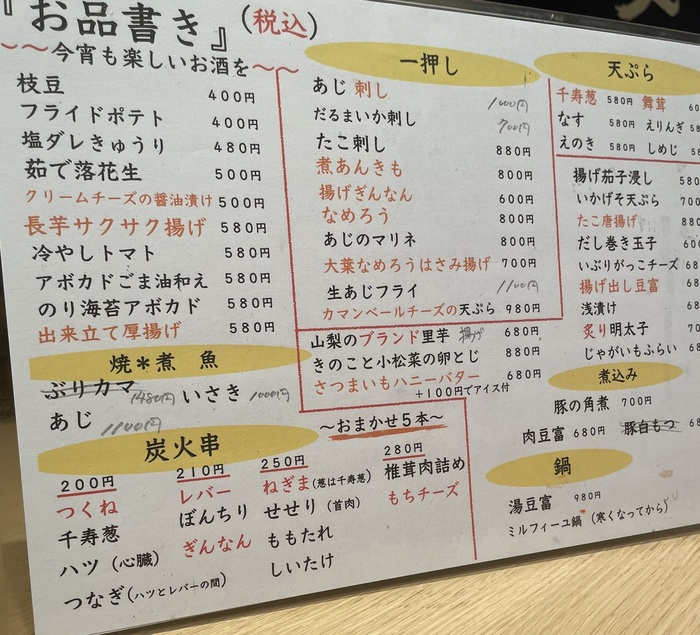 『お品書き』（税込）
～～今宵も楽しいお酒を～～
枝豆 400円
フライドポテト 400円
塩ダレきゅうり 480円
茹で落花生 500円
クリームチーズの醤油漬け 500円
長芋サクサク揚げ 580円
冷やしトマト 580円
アボカドごま油和え 580円
のり海苔アボカド 580円
出来立て厚揚げ 580円
焼＊煮 魚
ぶりカマ 1480円 いさき 1000円
あじ 1100円
炭火串
200円
つくね
千寿葱
ハツ（心臓）
つなぎ（ハツとレバーの間）
210円
レバー
ぼんちり
ぎんなん
250円
ねぎま（葱は千寿葱）
せせり（首肉）
ももたれ
しいたけ
～おまかせ5本～
280円
椎茸肉詰め
もちチーズ
一押し
あじ刺し 1000円
だるまいか刺し 700円
たこ刺し 880円
煮あんきも 800円
揚げぎんなん 600円
なめろう 800円
あじのマリネ 800円
大葉なめろうはさみ揚げ 700円
生あじフライ 1100円
カマンベールチーズの天ぷら 980円
山梨のブランド里芋 揚げ 680円
きのこと小松菜の卵とじ 880円
さつまいもハニーバター 680円
＋100円でアイス付
天ぷら
千寿葱 580円 舞茸
なす 580円 えりんぎ
えのき 580円 しめじ
揚げ茄子浸し
いかげそ天ぷら
たこ唐揚げ
だし巻き玉子
いぶりがっこチーズ
揚げ出し豆富
浅漬け
炙り明太子
じゃがいもふらい
煮込み
豚の角煮 700円
肉豆富 680円 豚白もつ
鍋
湯豆富 980円
ミルフィーユ鍋（寒くなってから）